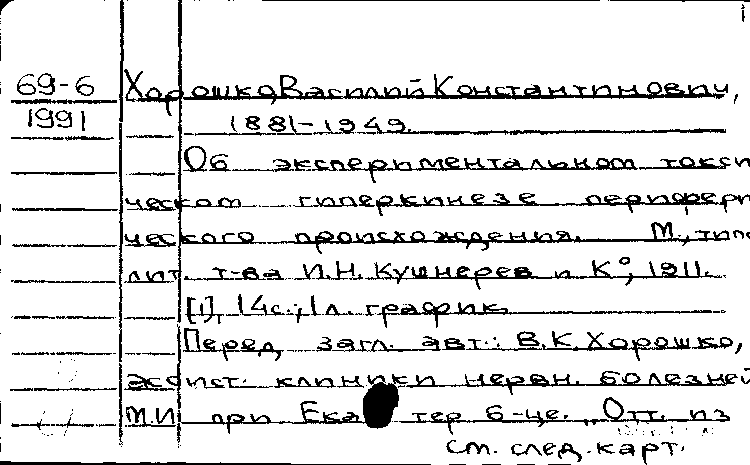 69-6 Хорошко, Василий Константинович,
1991 1881-1949.
Об экспериментальном токси
ческом гиперкинезе перифери
ческого происхождения. М., типо
лит. т-ва И.Н. Кушнерев и К°, 1911.
[1], 14 с.; 1 л. график.
Перед загл. авт.: В.К. Хорошко,
клиники нервн. болезней
М.И при Ека тер б-це. „Отт. из
см. след. карт.